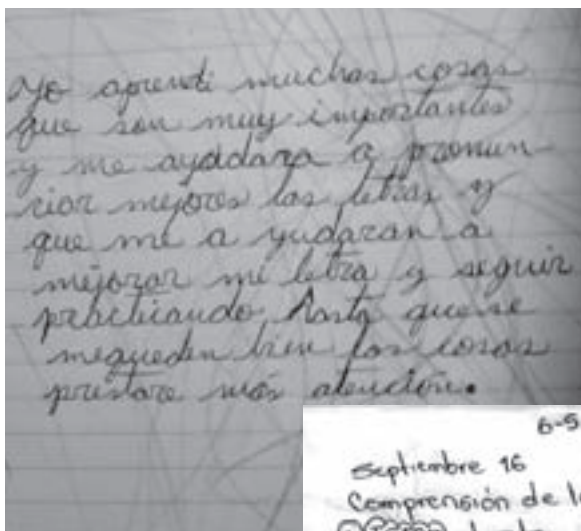 Yo aprendi muchas cosas
que son muy importantes
y me ayudara a pronun-
ciar mejores las letras y
que me a yudaran a
mejorar mi letra y seguir
practicando hasta que se
me queden bien las cosas
prestare más atención.
6-5
Septiembre 16
Comprensión de